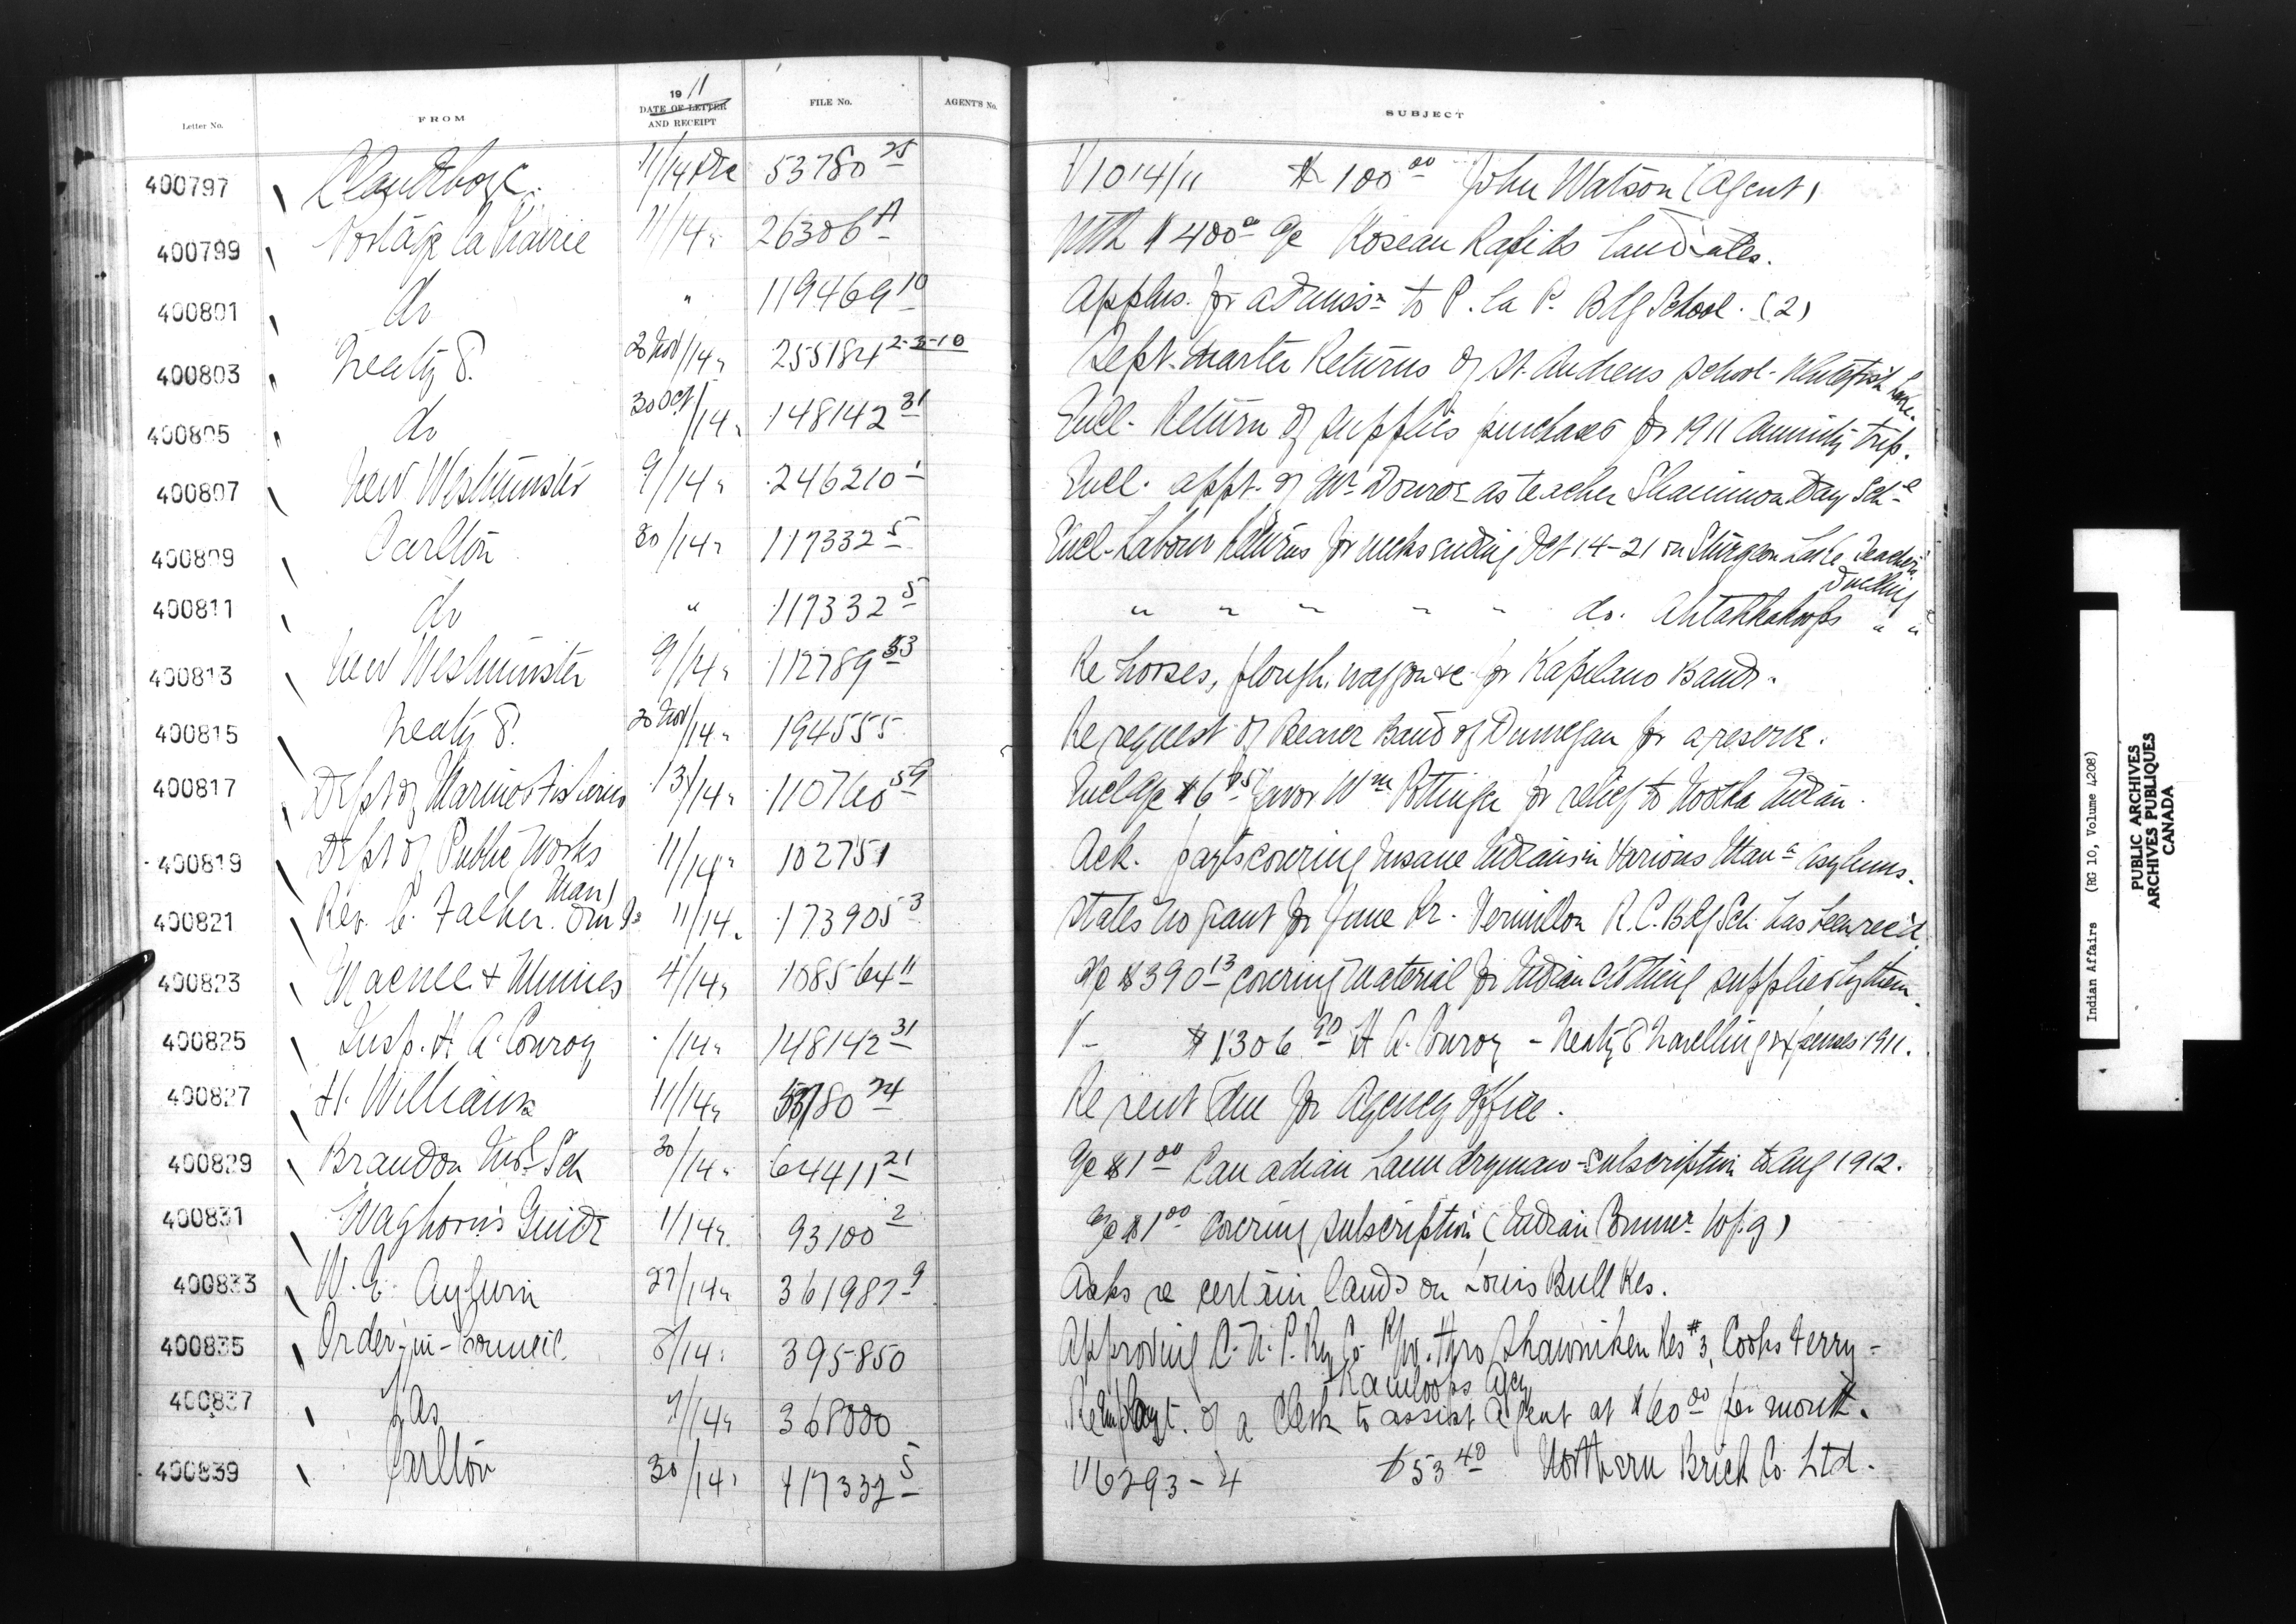 Letter No. FROM 1911 DATE OF LETTER AND RECEIPT FILE No. AGENT'S No. SUBJECT
400797 Clandeboye 11/14 Dec 53780 25 V1014/11 $100 00 John Watson (Agent)
400799 Portage la Prairie 11/14 " 26306 A With $400 a/c Roseau Rapids land sales.
400801 do " 119469 10 Applns. for admissn to P. la P. Bdg School. (2)
400803 Treaty 8. 20 Nov/14 " 255184 2-3-10 Sept. Quarter Returns of St. Andrews School - Whitefish Lake.
400805 do 30 Oct/14 " 148142 31 Encl. Return of supplies purchased for 1911 Annuity trip.
400807 New Westminster 9/14 " 246210 1 Encl. appt. of Mr as teacher Day Sch
400809 Carlton 30/14 " 117332 5 Encl. Labour Returns for weeks ending Oct 14-21 on Sturgeon Lake Teacher's Dwelling
400811 do " 117332 5 " " " " " do. Ahtahkakoops " "
400813 New Westminster 9/14 " 112789 53 Re horses, plough, waggon &c for Kapilano Band.
400815 Treaty 8. 20 Nov/14 " 194555 Re request of Beaver Band of Dunvegan for a reserve.
400817 Dept of Marine & Fisheries 13/14 " 110760 59 Encl a/c $6 favor Wm Pottinger for relief to Nootka Indian.
400819 Dept of Public Works Man 11/14 " 102751 Ack. payts covering Insane Indians in Various Man Asylums.
400821 Rev. C. Falher. O.M.I. 11/14 " 173905 3 States no grant for June Qr. Vermilion R.C. Bdg Sch has been rec'd.
400823 Macnee & Minnes 4/14 " 108564 11 A/c $390 13 covering material for Indian clothing supplied by them.
400825 Insp. H. A. Conroy /14 " 148142 31 V- $1306 90 H. A. Conroy - Treaty 8 travelling expenses 1911.
400827 H. Williams 11/14 " 53780 24 Re rent due for Agency Office.
400829 Brandon Ind. Sch 30/14 " 64411 21 A/c $1 00 Canadian Laundryman - Subscription to Aug 1912.
400831 Waghorn's Guide 1/14 " 93100 2 A/c $1 00 covering subscription (Indian Commr. Wpg)
400833 W. E. 27/14 " 361987 9 Asks re certain lands on Louis Bull Res.
400835 Order-in-Council. 8/14 " 395850 Approving C.N.P. Ry Co R/W. thro Shawniken Res #3, Cooks Ferry - Kamloops Agcy
400837 Pas 7/14 " 368000 Re Employt. of a Clerk to assist Agent at $60 00 per month.
400839 Carlton 30/14 " 117332 5 V6293-4 $53 40 Northern Brick Co. Ltd.
Indian Affairs (RG 10, Volume 4208)
PUBLIC ARCHIVES
ARCHIVES PUBLIQUES
CANADA